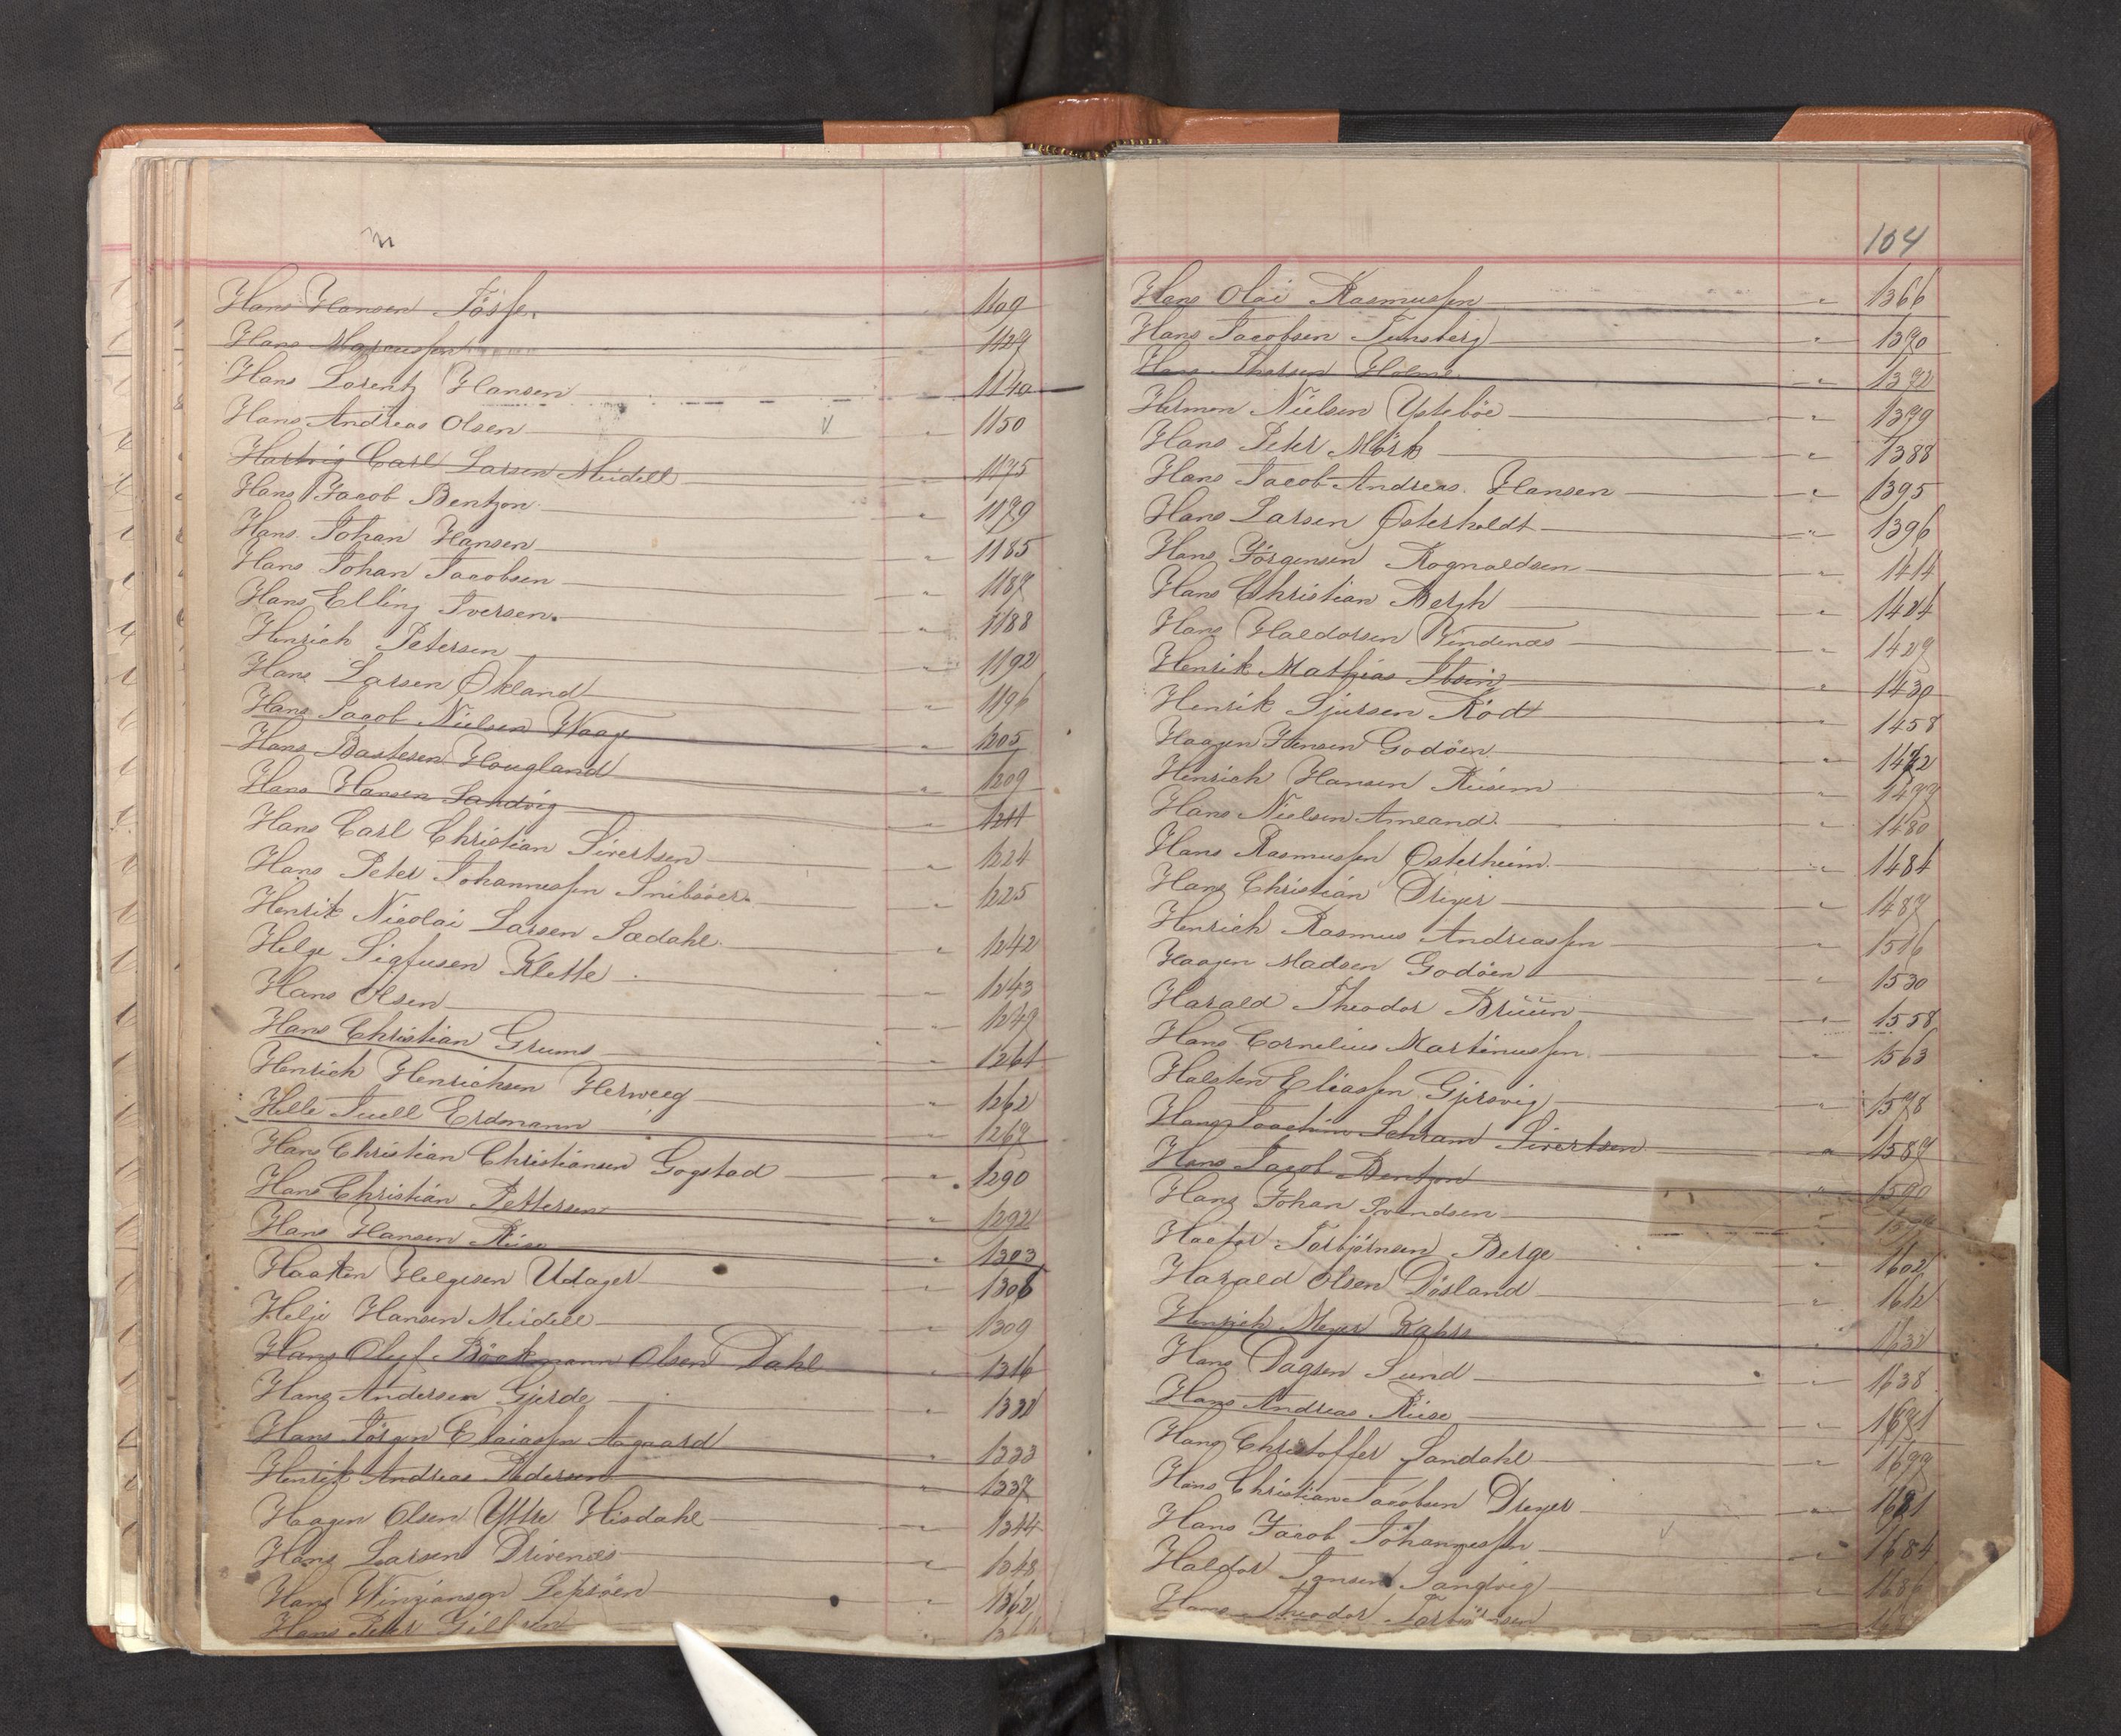 Hans Hansen Fösse 1109
Hans Marcussen 1129
Hans Lorentz Hansen 1140
Hans Andreas Olsen " 1150
Hartvig Carl Larsen Meidell 1175
Hans Jacob Bentzon " 1179
Hans Johan Hansen " 1185
Hans Johan Jacobsen " 1187
Hans Elling Iversen " 1188
Henrich Petersen " 1192
Hans Larsen Økland " 1196
Hans Jacob Nielsen Waage " 1205
Hans Bastesen Hougland " 1209
Hans Hansen Sandvig " 1211
Hans Carl Christian Sivertsen " 1224
Hans Peter Johannessen Snibsöer " 1225
Henrik Nicolai Larsen Sædahl " 1242
Helge Sigfusen Klette " 1243
Hans Olsen " 1249
Hans Christian Grums " 1261
Henrich Henrichsen Herweeg " 1262
Helle Juell Erdmann " 1267
Hans Christian Christiansen Gogstad " 1290
Hans Christian Pettersen " 1292
Hans Hansen Riise " 1303
Haaken Helgesen Udager " 1306
Helje Hansen Meidell " 1309
Hans Oluf Böckmann Olsen Dahl " 1316
Hans Andersen Gjerde " 1331
Hans Jörgen Elaiassen Aagaard " 1333
Henrik Andreas Pedersen " 1337
Haagen Olsen Yttre Hisdahl " 1344
Hans Larsen Drivenæs " 1348
Hans Winziansen Lepsöen " 1362
Hans Peter
104
Hans Olai Rasmussen " 1366
Hans Jacobsen Tunsberg " 1370
Hans Thorsen Holme " 1372
Helmen Nielsen Ystebøe " 1379
Hans Peter Mörk " 1388
Hans Jacob Andreas Hansen " 1395
Hans Larsen Østerholdt " 1396
Hans Jörgensen Rognaldsen " 1414
Hans Christian Bergh " 1424
Hans Haldorsen Vindenæs " 1429
Henrik Mathias Ibsen " 1430
Henrik Sjursen Röd " 1458
Haagen Jensen Godöen " 1472
Henrich Hansen Riisem " 1477
Hans Nielsen Amland " 1480
Hans Rasmussen Østerheim " 1484
Hans Christian Dreyer " 1487
Henrich Rasmus Andreassen " 1516
Haagen Madsen Godöen " 1530
Harald Theodor Brüün " 1558
Hans Cornelius Martinussen " 1563
Halsten Eliassen Gjersvig " 1578
Hans Joachim Schram Sivertsen " 1587
Hans Jacob Bentzon " 1590
Hans Johan Svendsen "
Hactor Torbjörnsen Berge " 1602
Harald Olsen Dösland " 1612
Henrich Meyer Kahrs " 1632
Hans Dagsen Lund " 1638
Hans Andreas Riise " 1671
Hans Christoffer Sandahl " 1677
Hans Christian Jacobsen Dreyer " 1681
Hans Jacob Johannessen " 1684
Haldor Jansen Sandvig " 1686
Hans Theodor Torbiörnsen